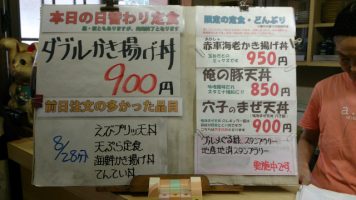 本日の日替わり定食
ダブルかき揚げ丼
900円
前日注文の多かった品目
8/28分
えびプリッ天丼
天ぷら定食
海鮮かき揚げ丼
てんてい丼
限定の定食・どんぶり
赤車海老かき揚げ丼
950円
俺の豚天丼
850円
穴子のまぜ天丼
900円
グルメぐる麺 スタンプラリー
地産地消スタンプラリー
実施中です